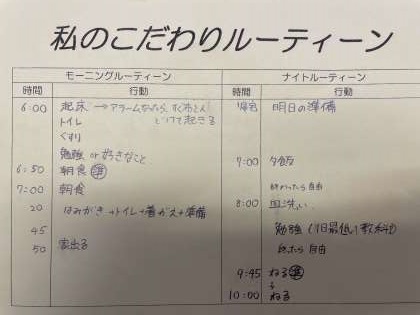 私のこだわりルーティーン
モーニングルーティーン
時間 行動
6:00 起床 → アラームなったら、すぐふとん
どけて起きる
トイレ
くすり
勉強 or 好きなこと
6:50 朝食 準
7:00 朝食
20 はみがき+トイレ+着がえ+準備
45
50 家出る
ナイトルーティーン
時間 行動
帰宅 明日の準備
7:00 夕飯
終わったら自由
8:00 皿洗い
勉強 (1日最低1教科)
終ったら自由
9:45 ねる準
10:00 ねる